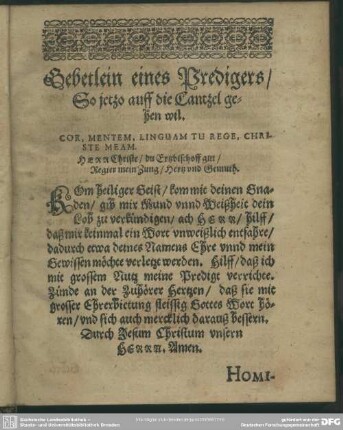 Gebetlein eines Predigers/
So jetzo auff die Cantzel ge-
hen wil.
COR, MENTEM, LINGUAM TU REGE, CHRI-
STE MEAM.
HERR Christe/ du Ertzbischoff gut/
Regier mein Zung/ Hertz vnd Gemüth.
KOm heiliger Geist/ kom mit deinen Gna-
den/ gib mir Mund vnnd Weißheit dein
Lob zu verkündigen/ ach HERR/ hilff/
daß mir keinmal ein Wort vnweißlich entfahre/
dadurch etwa deines Namens Ehre vnnd mein
Gewissen möchte verletzt werden. Hilff/ daß ich
mit grossem Nutz meine Predigt verrichte.
Zünde an der Zuhörer Hertzen/ daß sie mit
grosser Ehrerbietung fleissig Gottes Wort hö-
ren/ vnd sich auch mercklich darauß bessern.
Durch Jesum Christum vnsern
HERRN. Amen.
HOMI-